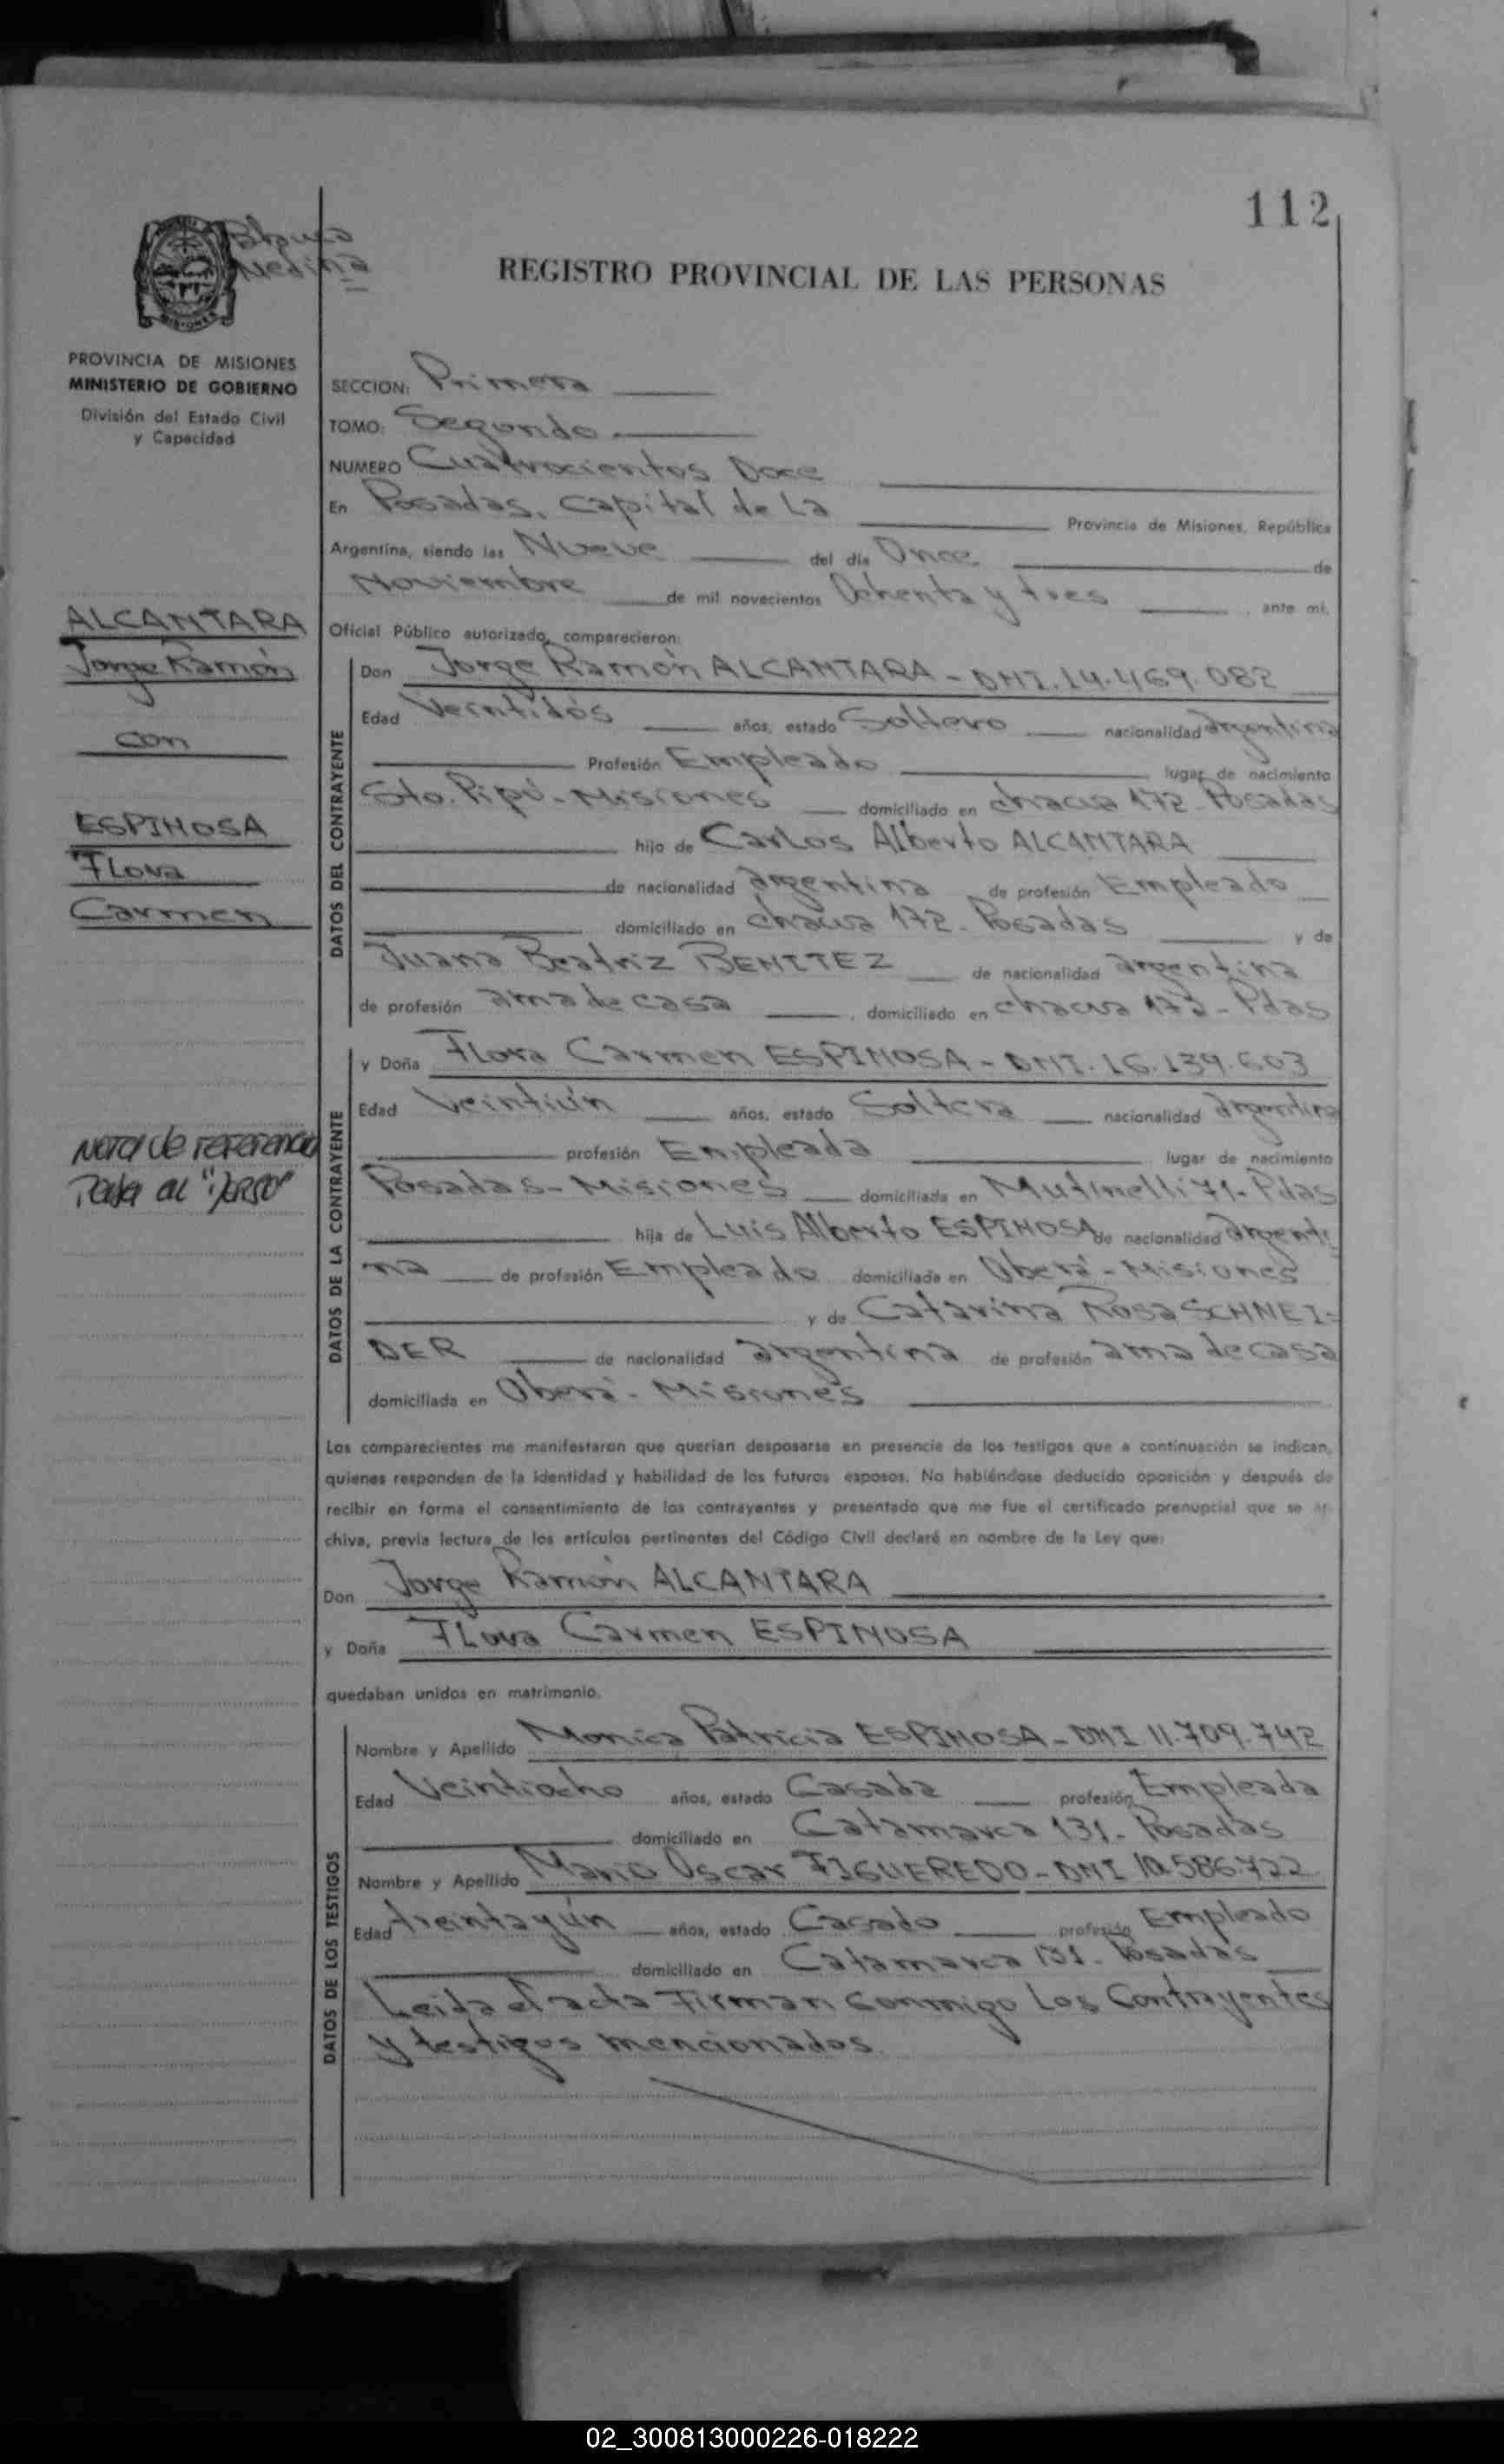 112
REGISTRO PROVINCIAL DE LAS PERSONAS
MISIONES
PROVINCIA DE MISIONES
MINISTERIO DE GOBIERNO
División del Estado Civil
y Capacidad
Medina
SECCION: Primera
TOMO: Segundo
NUMERO Cuatrocientos Doce
En Posadas, Capital de La Provincia de Misiones, República
Argentina, siendo las Nueve del día Once de
Noviembre de mil novecientos Ochenta y tres, ante mí,
Oficial Público autorizado, comparecieron:
ALCANTARA
Jorge Ramón
con
ESPINOSA
Flora
Carmen
Nota de referencia
Pasa al "Verso"
DATOS DEL CONTRAYENTE
Don Jorge Ramón ALCANTARA - DNI. 14.469.082
Edad Veintidós años, estado Soltero nacionalidad argentina
Profesión Empleado lugar de nacimiento
Sto. Pipó - Misiones domiciliado en chacra 172 - Posadas
hijo de Carlos Alberto ALCANTARA
de nacionalidad argentina de profesión Empleado
domiciliado en chacra 172 - Posadas y de
Juana Beatriz BENITEZ de nacionalidad argentina
de profesión ama de casa, domiciliado en chacra 172 - Pdas
DATOS DE LA CONTRAYENTE
y Doña Flora Carmen ESPINOSA - DNI. 16.139.603
Edad Veintiún años, estado Soltera nacionalidad argentina
profesión Empleada lugar de nacimiento
Posadas - Misiones domiciliada en Mutinelli 71 - Pdas
hija de Luis Alberto ESPINOSA de nacionalidad argenti
na de profesión Empleado domiciliada en Oberá - Misiones
y de Catarina Rosa SCHNEI-
DER de nacionalidad argentina de profesión ama de casa
domiciliada en Oberá - Misiones
Los comparecientes me manifestaron que querían desposarse en presencia de los testigos que a continuación se indican,
quienes responden de la identidad y habilidad de los futuros esposos. No habiéndose deducido oposición y después de
recibir en forma el consentimiento de los contrayentes y presentado que me fue el certificado prenupcial que se ar-
chiva, previa lectura de los artículos pertinentes del Código Civil declaré en nombre de la Ley que:
Don Jorge Ramón ALCANTARA
y Doña Flora Carmen ESPINOSA
quedaban unidos en matrimonio.
DATOS DE LOS TESTIGOS
Nombre y Apellido Monica Patricia ESPINOSA - DNI 11.709.742
Edad Veintiocho años, estado Casada profesión Empleada
domiciliado en Catamarca 131 - Posadas
Nombre y Apellido Mario Oscar FIGUEREDO - DNI 10.586.722
Edad treinta y ún años, estado Casado profesión Empleado
domiciliado en Catamarca 131 - Posadas
Leida el acta Firman conmigo Los Contrayentes
y testigos mencionados.
02_300813000226-018222